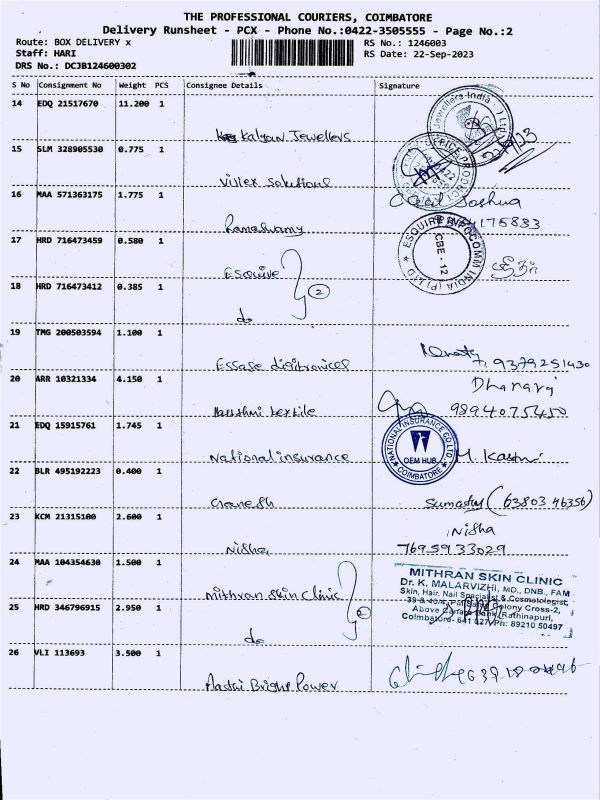 THE PROFESSIONAL COURIERS, COIMBATORE
Delivery Runsheet - PCX - Phone No.:0422-3505555 - Page No.:2
Route: BOX DELIVERY x RS No.: 1246003
Staff: HARI RS Date: 22-Sep-2023
DRS No.: DCJB124600302
S No Consignment No Weight PCS Consignee Details Signature
14 EDQ 21517670 11.200 1
Kalyan Jewellers
15 SLM 328905530 0.775 1
Solutions
16 MAA 571363175 1.775 1 Cecil Joshua
Ramaswamy
17 HRD 716473459 0.580 1 ESQUIRE INFOCOMM INDIA (P) LTD
CBE - 12
Esquire
18 HRD 716473412 0.385 1 2
do
19 TMG 200503594 1.100 1
9379251430
20 ARR 10321334 4.150 1 Dhanaraj
textile 9894075450
21 EDQ 15915761 1.745 1 NATIONAL INSURANCE CO LTD
OEM HUB
COIMBATORE
National insurance
22 BLR 495192223 0.400 1
Ganesh (63803 46356)
23 KCM 21315100 2.600 1 Nisha
Nisha 7695933029
24 MAA 104354630 1.500 1
Mithran Skin Clinic MITHRAN SKIN CLINIC
Dr. K. MALARVIZHI, MD., DNB., FAM
Skin, Hair, Nail Specialist & Cosmetologist,
25 HRD 346796915 2.950 1 2
Colony Cross-2,
Above Bank, Rathinapuri,
Coimbatore- 641 027 Ph: 89210 50497
do
26 VLI 113693 3.500 1
Bright Power